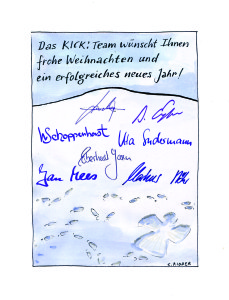 Das KICK! Team wünscht Ihnen
frohe Weihnachten und
ein erfolgreiches neues Jahr!
Schoppenhorst Uta Sudermann
Eberhard
Jan Mees Markus